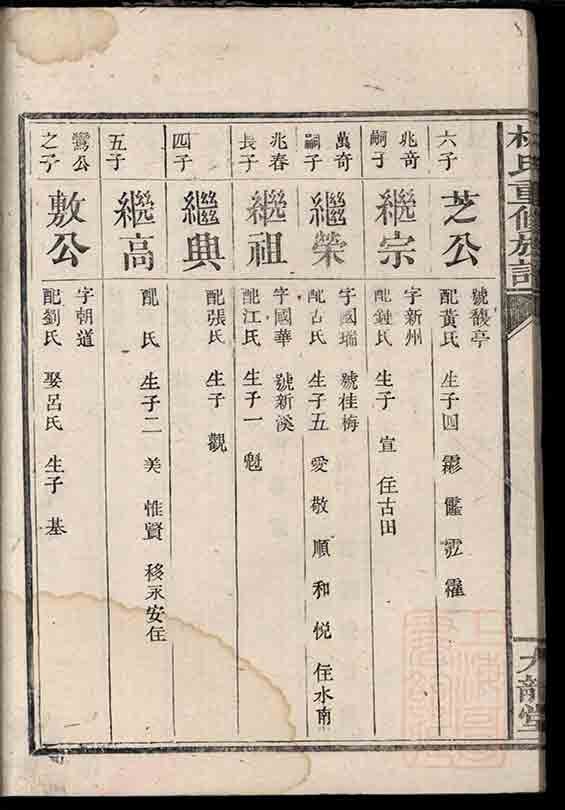 林氏重修族譜
六子
芝公
號馥亭
配黃氏 生子四
兆奇
嗣子
繼宗
字新州
配鏈氏 生子 宣 住古田
萬奇
嗣子
繼榮
字國瑞 號桂梅
配古氏 生子五 愛 敬 順 和 悅 住水南
兆春
長子
繼祖
字國華 號新溪
配江氏 生子一 魁
四子
繼興
配張氏 生子 觀
五子
繼高
配 氏 生子二 美 惟賢 移永安住
鸞公
之子
敷公
字朝道
配劉氏 娶呂氏 生子 基